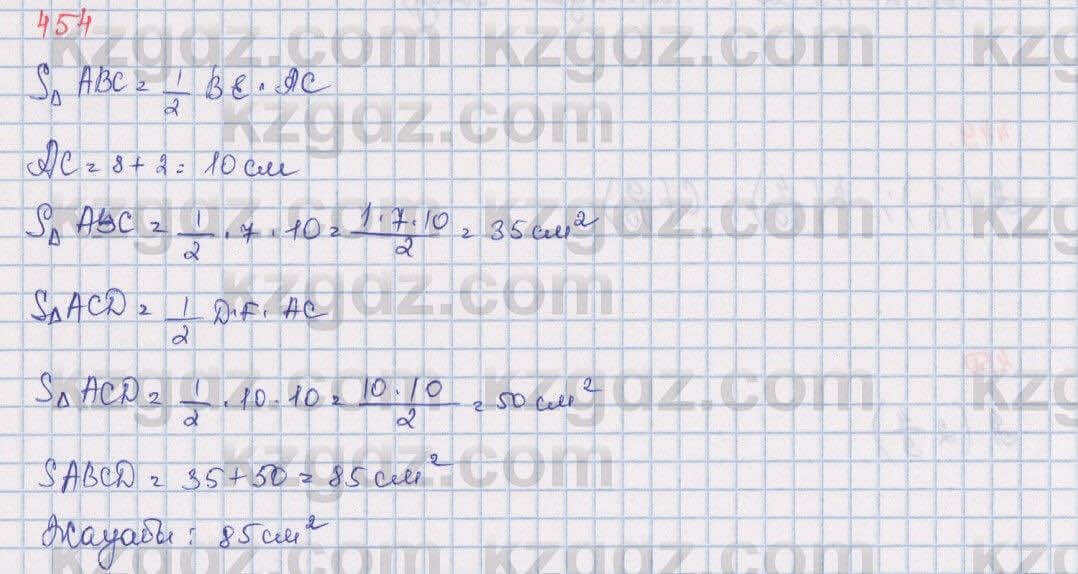 454
kzgdz.com
S△ ABC = 1/2 BE · AC
AC = 8 + 2 = 10 см
S△ ABC = 1/2 · 7 · 10 = 1·7·10/2 = 35 см²
S△ ACD = 1/2 D·F· AC
S△ ACD = 1/2 · 10 · 10 = 10·10/2 = 50 см²
SABCD = 35 + 50 = 85 см²
Жауабы: 85 см²